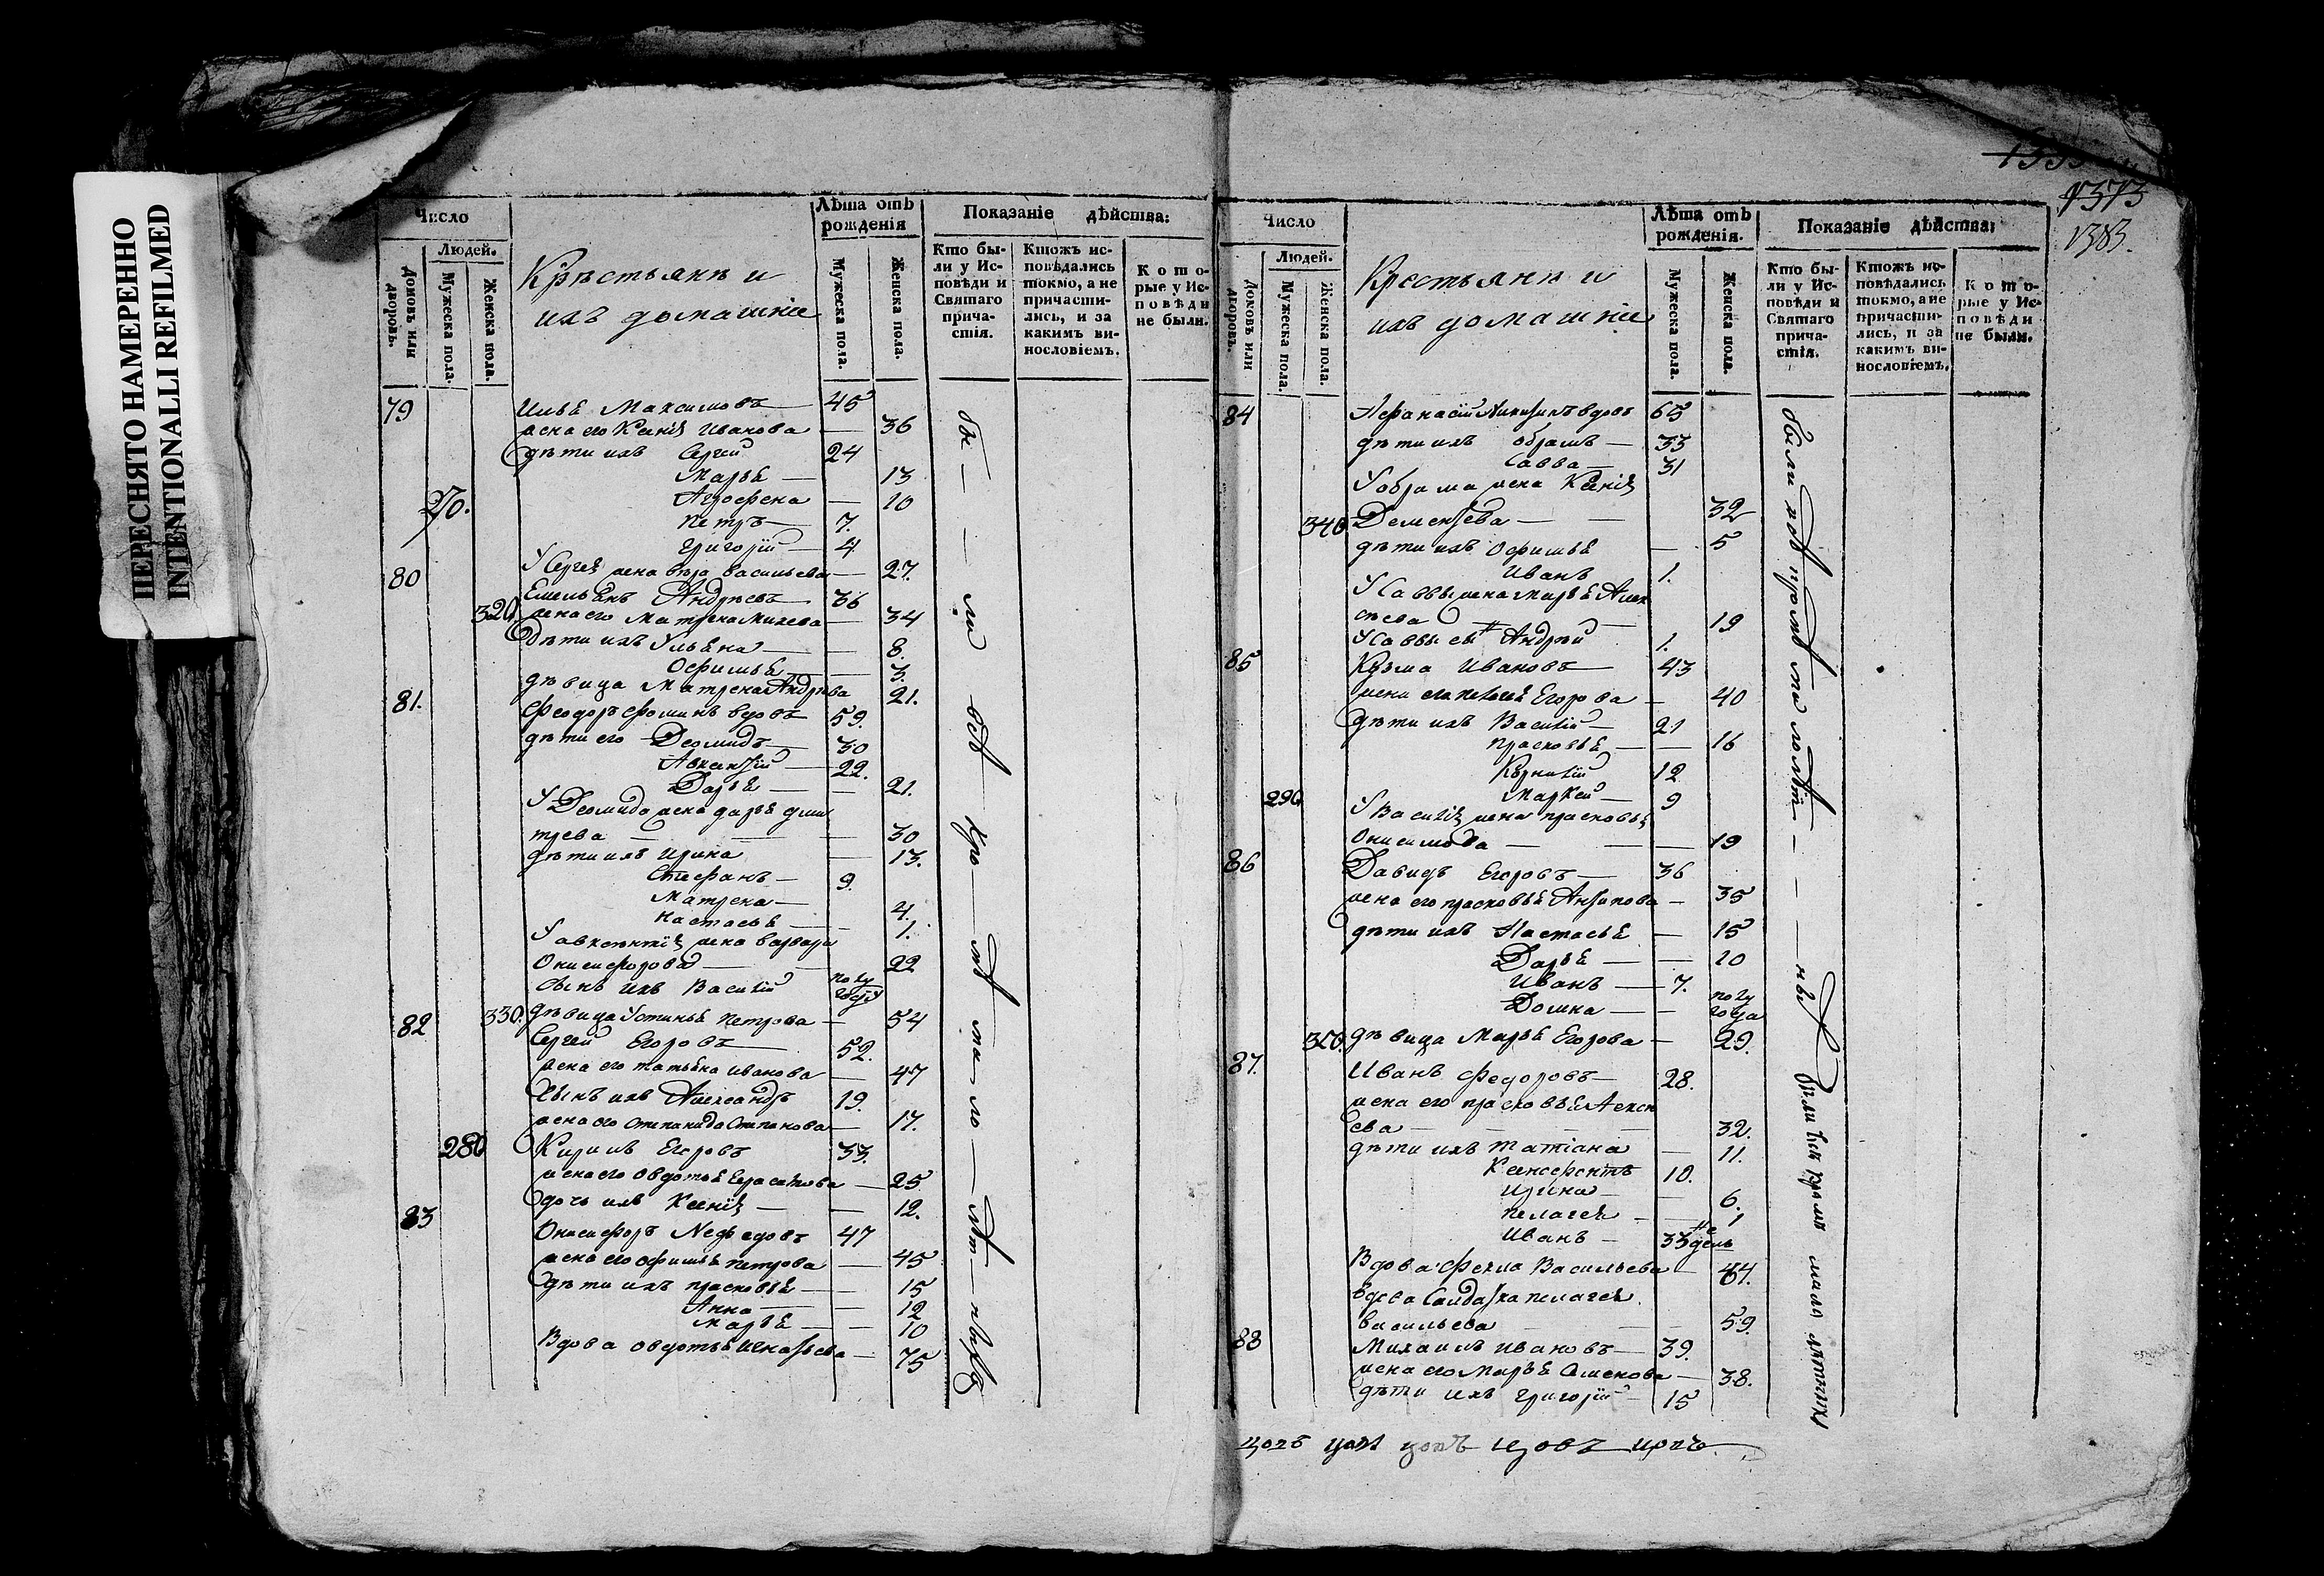 ПЕРЕСНЯТО НАМЕРЕННО
INTENTIONALLI REFILMED
Число
Людей.
домовъ или дворовъ.
Мужеска пола.
Женска пола.
Крѣстьянѣ и
ихъ домашніе
Лѣта отъ рожденія
Мужеска пола.
Женска пола.
Показаніе дѣйства:
Кто были у Исповѣди и Святаго причастія.
Ктожъ исповѣдались токмо, а не причастились, и за какимъ винословіемъ.
Которые у Исповѣди не были.
79 Илья Максимовъ 45
жена его Ксенія Иванова — 36
дѣти ихъ Сергей 24
Марья — 13
270. Агрофена — 10
Петръ — 7.
Григорій — 4
У Сергея жена вѣра васильева — 27.
80 Емельянъ Андрѣевъ 36
320. жена его Матрена Михева — 34
дѣти ихъ Ульяна — 8.
Офимья — 3.
дѣвица Матрена Андрѣва 21.
81. Феодоръ Фоминъ вдовъ 59.
дѣти его Деомидъ — 30
Авксентій — 22.
Дарья — 21.
У Деомида жена дарья дми
трева — 30
дѣти ихъ Ирина — 13.
Стефанъ — 9.
Матрена — 4.
Настасья — 1.
У авксентія жена варвара
Онисифорова — 22
сынъ ихъ Василій полу году
330. дѣвица Устинья Петрова — 54
82 Сергей Егоровъ 52.
жена его татьяна иванова — 47
сынъ ихъ Александръ 19.
жена его степанида Степанова — 17.
280 Кирилъ Егоровъ 33.
жена его овдотья — 25
дочь ихъ Ксенія — 12.
83 Онисифоръ Нефедовъ 47
жена его офимья петрова — 45
дѣти ихъ прасковья — 15
Анна — 12
марья — 10
Вдова овдотья Игнатьева — 75
бы — — ли всѣ — кро — мѣ ма — ло — лѣт — ныхъ
1373
1383.
Число
Людей.
домовъ или дворовъ.
Мужеска пола.
Женска пола.
Крестьянѣ и
ихъ домашніе
Лѣта отъ рожденія.
Мужеска пола.
Женска пола.
Показаніе дѣйства:
Кто были у Исповѣди и Святаго причастія.
Ктожъ исповѣдались токмо, а не причастились, и за какимъ винословіемъ.
Которые у Исповѣди не были.
84 Афанасій вдовъ 65
дѣти ихъ обрамъ — 33
Савва — 31
У обрама жена Ксенія
340 Дементева — 32
дѣти ихъ Офимья — 5
Иванъ 1.
У Саввы жена марья Алек
сѣева — 19
У Саввы сынъ Андрѣй 1.
85 Кузма Ивановъ 43
жена его пелагея Егорова — 40
дѣти ихъ Василій — 21
прасковья — 16
Корнилій 12
290 Маркей — 9
У Василія жена прасковья
Онисимова — 19
86 Давидъ Егоровъ — 36
жена его прасковья Антипова — 35
дѣти ихъ Настасья — 15
Дарья — 10
Иванъ — 7.
Домна — полу года
350. дѣвица Марья Егорова — 29.
87. Иванъ федоровъ — 28.
жена его прасковья Алексѣ
ева — 32.
дѣти ихъ Татіана — 11.
Ксенофонтъ 10.
Ирина — 6.
Пелагея — 1
Иванъ — 33 недель
Вдова фекла Васильева — 44.
вдова Салдатка пелагея
васильева — 59.
88 Михаилъ ивановъ — 39.
жена его Марья Семенова — 38.
дѣти ихъ григорій — 15
были всѣ кромѣ малолѣт — — — ныхъ
были всѣ кромѣ мало лѣтныхъ